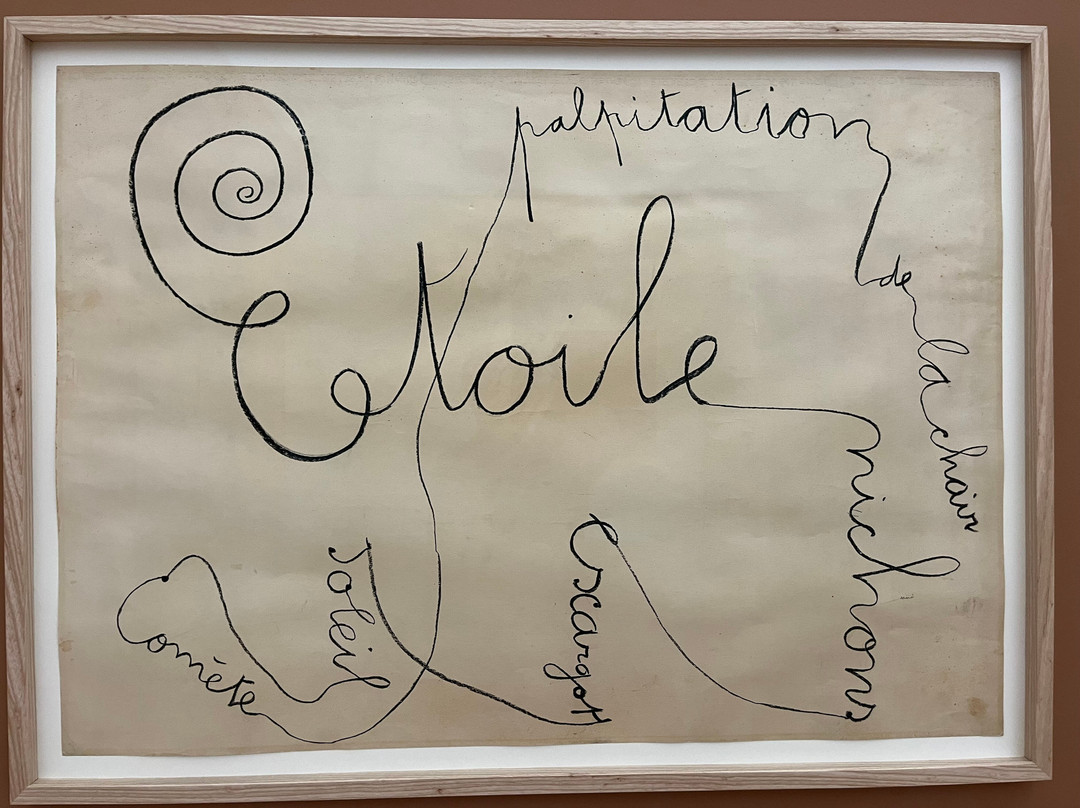 palpitation
de
la chair
Etoile
nichons
escargot
soleil
Comète